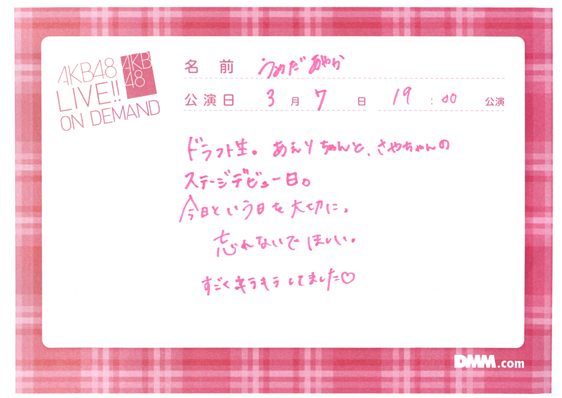 AKB48
LIVE!!
ON DEMAND
AKB
48
名 前 うめだあやか
公演日 3月7日 19:00 公演
ドラフト生。あえりちゃんと、さやちゃんの
ステージデビュー日。
今日という日を大切に。
忘れないでほしい。
すごくキラキラしてました♡
DMM.com